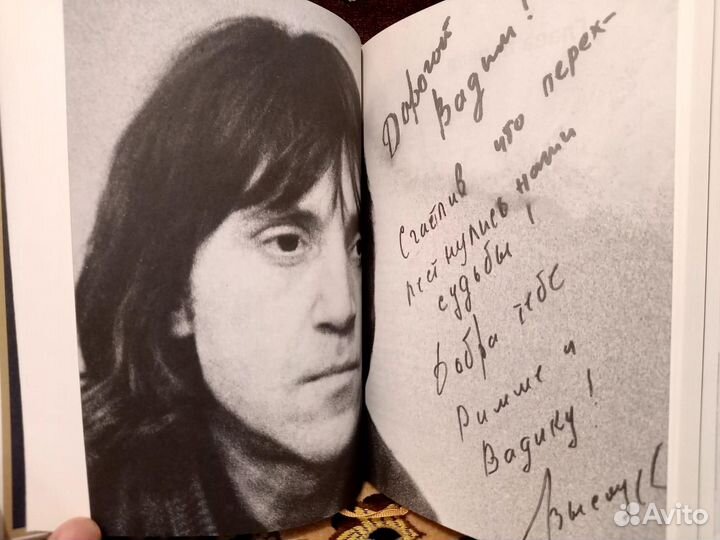 Дорогой
Вадим!
Счастлив что перек-
лестнулись наши
судьбы!
Добра тебе
Римме и
Вадику!
Высоцк
Avito